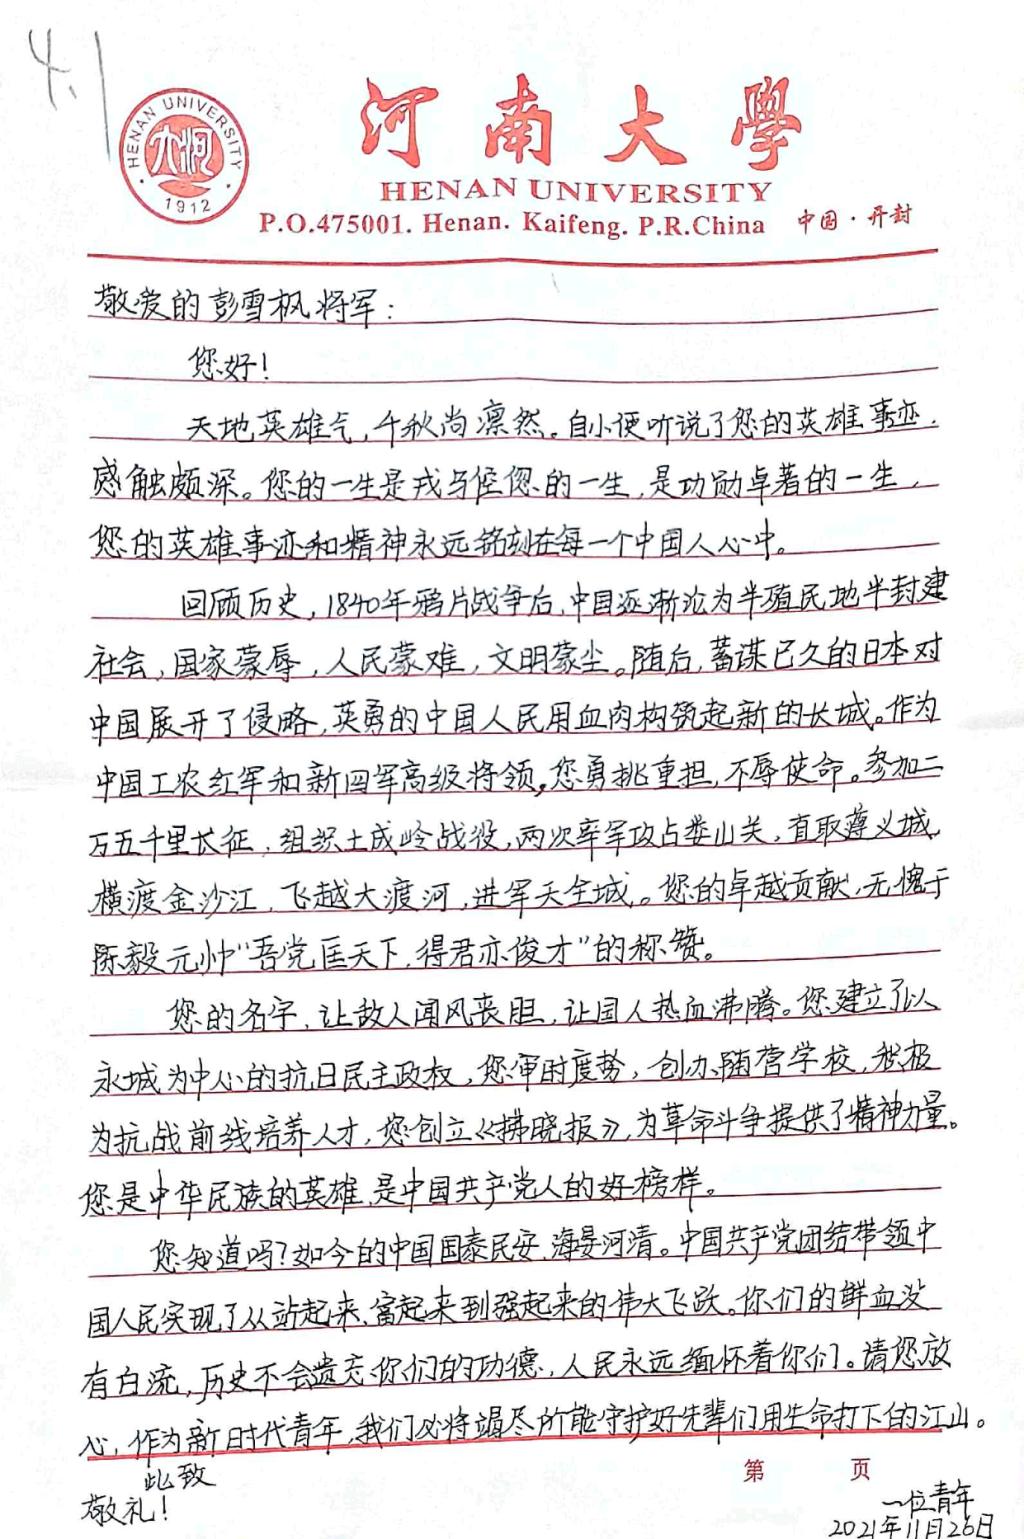 4.1
HENAN UNIVERSITY
1912
河南大學
HENAN UNIVERSITY
P.O.475001. Henan. Kaifeng. P.R.China 中国·开封
敬爱的彭雪枫将军：
您好！
天地英雄气，千秋尚凛然。自小便听说了您的英雄事迹，
感触颇深。您的一生是戎马倥偬的一生，是功勋卓著的一生，
您的英雄事迹和精神永远铭刻在每一个中国人心中。
回顾历史，1840年鸦片战争后，中国逐渐沦为半殖民地半封建
社会，国家蒙辱，人民蒙难，文明蒙尘。随后，蓄谋已久的日本对
中国展开了侵略，英勇的中国人民用血肉构筑起新的长城。作为
中国工农红军和新四军高级将领，您勇挑重担，不辱使命。参加二
万五千里长征，组织土成岭战役，两次率军攻占娄山关，直取遵义城，
横渡金沙江，飞越大渡河，进军天全城。您的卓越贡献，无愧于
陈毅元帅“吾党匡天下，得君亦俊才”的称赞。
您的名字，让敌人闻风丧胆，让国人热血沸腾。您建立了以
永城为中心的抗日民主政权，您审时度势，创办随营学校，积极
为抗战前线培养人才，您创立《拂晓报》，为革命斗争提供了精神力量。
您是中华民族的英雄，是中国共产党人的好榜样。
您知道吗？如今的中国国泰民安，海晏河清。中国共产党团结带领中
国人民实现了从站起来、富起来到强起来的伟大飞跃。你们的鲜血没
有白流，历史不会遗忘你们的功德，人民永远缅怀着你们。请您放
心，作为新时代青年，我们必将竭尽所能守护好先辈们用生命打下的江山。
第 页
此致
敬礼！
一位青年
2021年11月26日